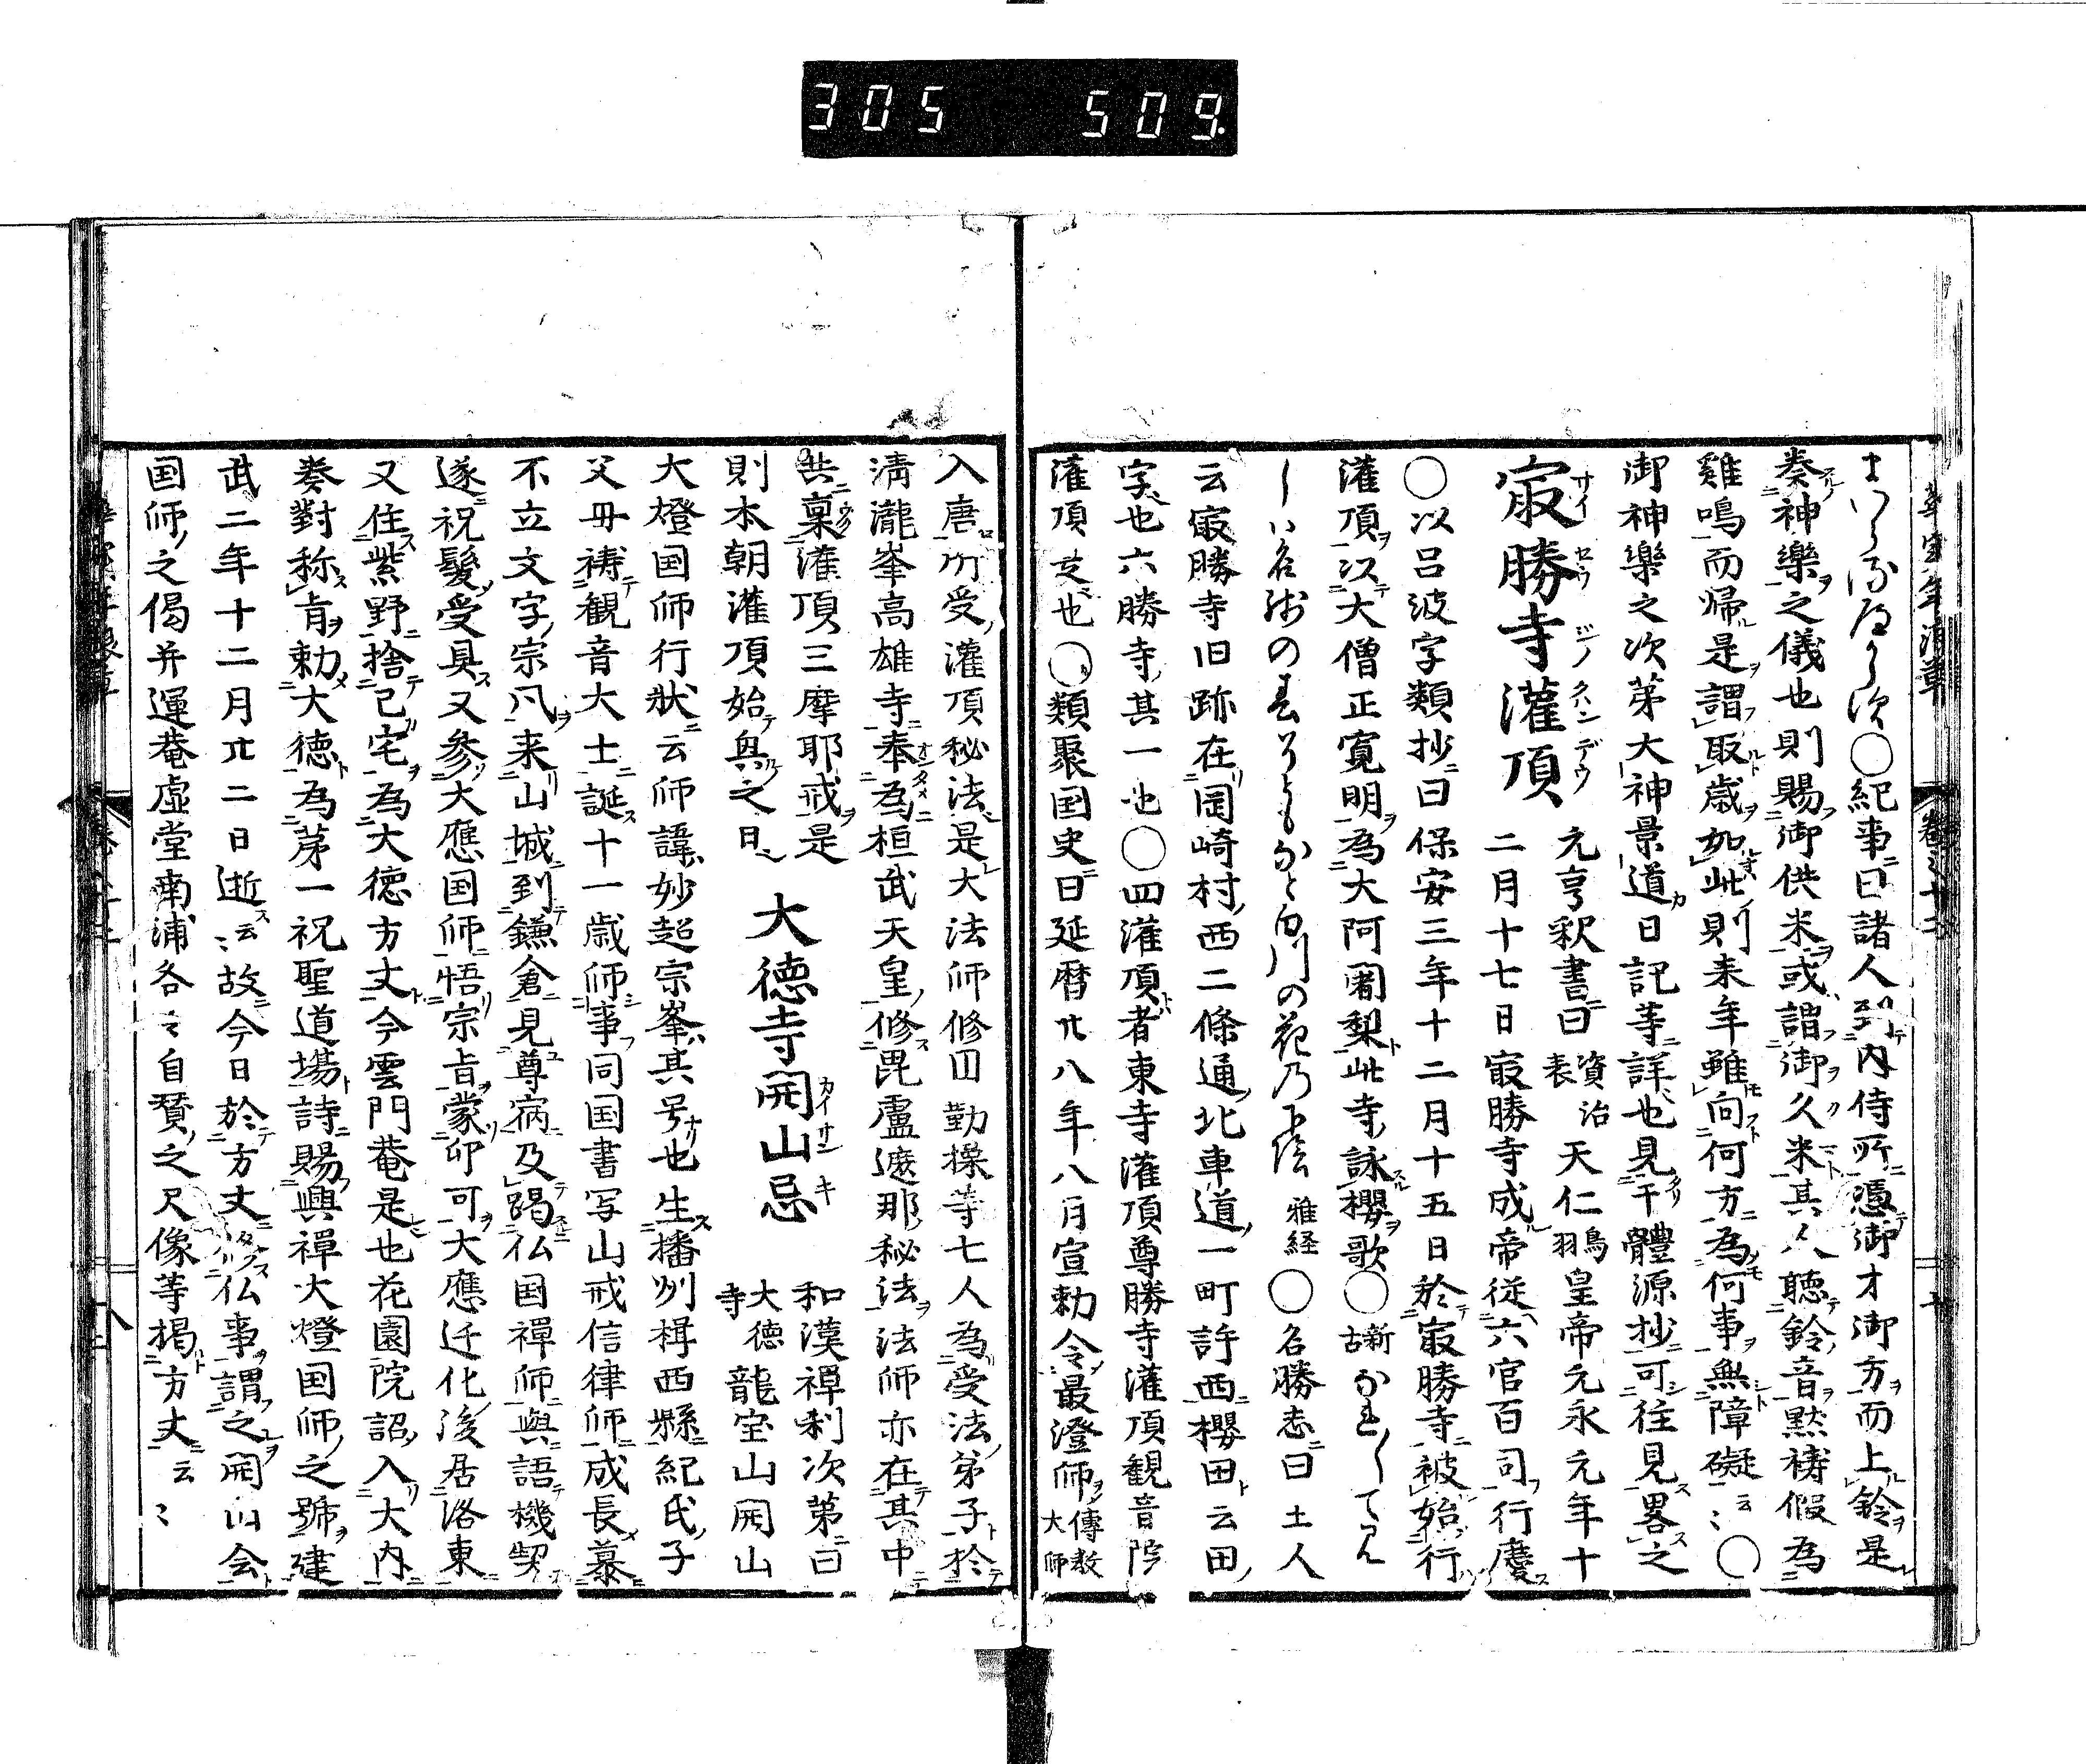 305 509.
まいらするに次○紀事曰諸人到内侍所憑御才御方而上鈴是
奏神樂之儀也則賜御供米或謂御久米其人聽鈴音黙祷假為
雞鳴而帰是謂取歳如此則来年雖向何方為何事無障礙云〻○
御神樂之次第大神景道日記等詳也見干體源抄可往見畧之
㝡勝寺灌頂 元亨釈書曰 資治表 天仁 鳥羽 皇帝元永元年十
二月十七日㝡勝寺成帝従六官百司行慶
サイセウジノクハンデウ
○以呂波字類抄曰保安三年十二月十五日於㝡勝寺被始行
灌頂以大僧正寛明為大阿闍梨此寺詠櫻歌○ 新古 なれ〳〵てみ
しは名残の春そともなと白川の花の下陰 雅経 ○名勝志曰土人
云㝡勝寺旧跡在岡崎村西二條通北車道一町許西櫻田云田
字也六勝寺其一也○四灌頂者東寺灌頂尊勝寺灌頂観音院
灌頂是也○類聚国史曰延暦廿八年八月宣勅令最澄師 傳教大師
入唐所受灌頂秘法是大法師修囬勤操等七人為受法弟子於
清瀧峯高雄寺奉為桓武天皇修毘盧遮那秘法法師亦在其中
共稟灌頂三摩耶戒是
則本朝灌頂始與之日
大徳寺開山忌 和漢禅刹次第曰
大徳寺 龍宝山開山
カイサンキ
大燈国師行状云師諱妙超宗峯其号也生播州揖西縣紀氏子
父毋祷観音大士誕十一歳師事同国書写山戒信律師成長慕
不立文字宗风来山城到鎌倉見尊病及謁仏国禅師與語機契
遂祝髪受具又参大應国師悟宗旨蒙印可大應迁化後居洛東
又住紫野捨己宅為大徳方丈今雲門菴是也花園院詔入大内
奏對称旨勅大徳為苐一祝聖道場詩賜興禪大燈国師之號建
武二年十二月廿二日逝云〻故今日於方丈修仏事謂之開山会
国師之偈并運菴虚堂南浦各〻自賛之尺像等掲方丈云〻